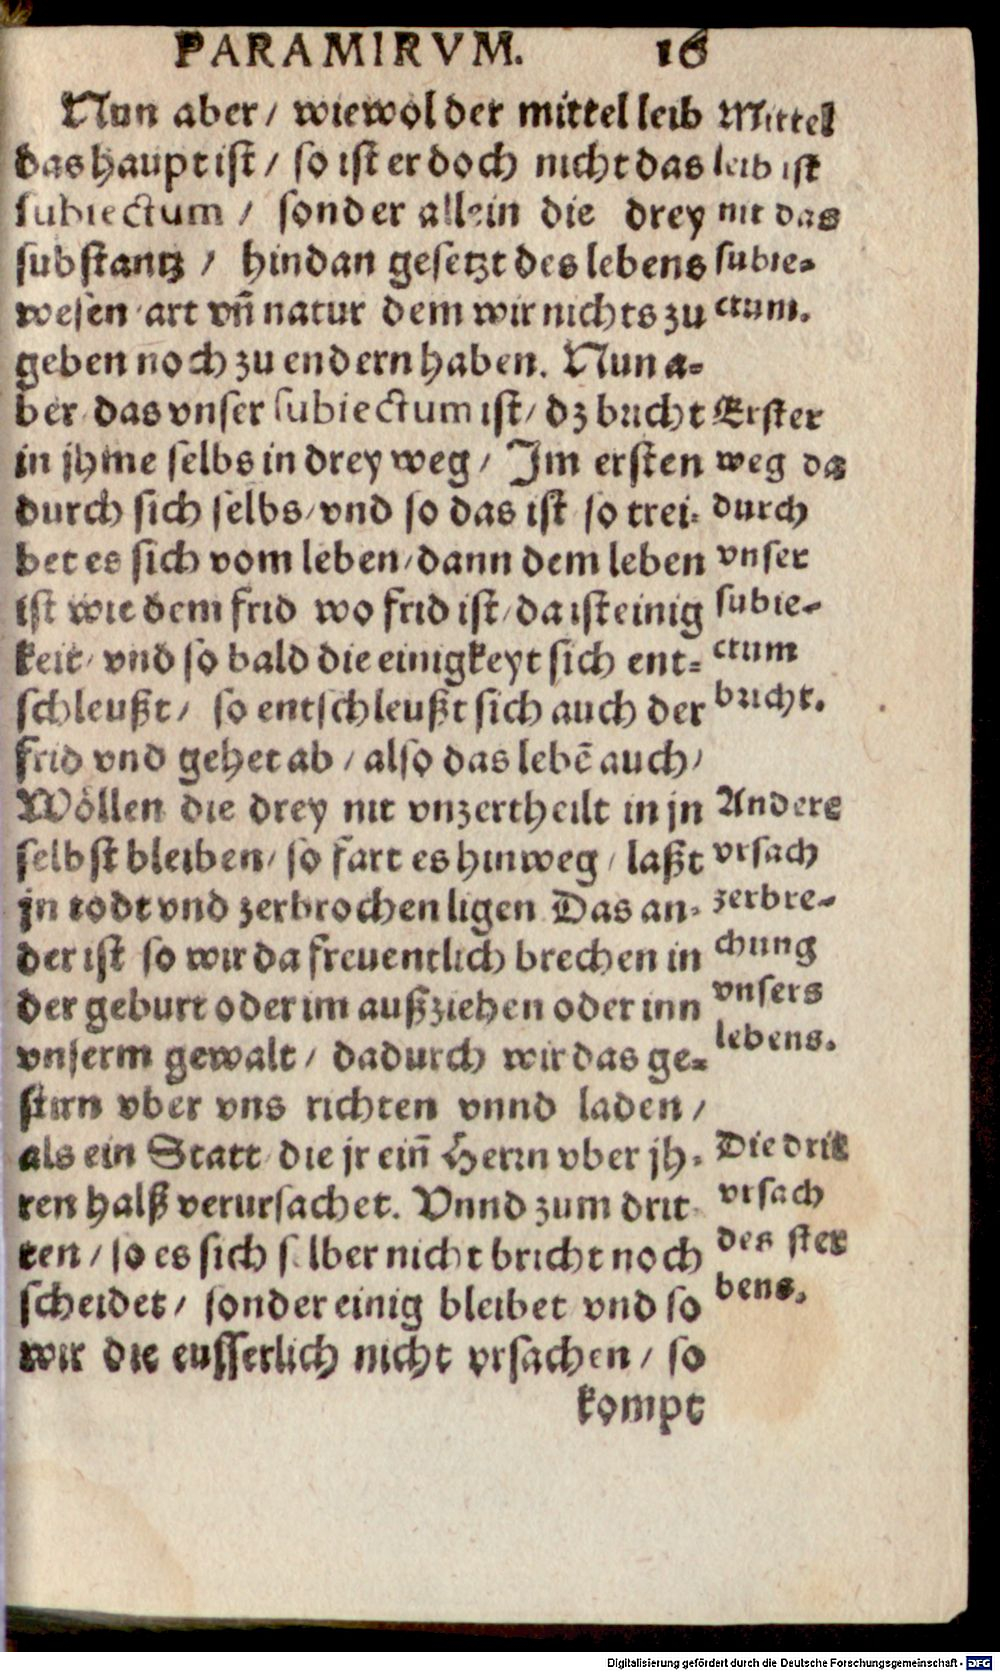 PARAMIRVM. 16
Nun aber / wiewol der mittel leib
das haupt ist / so ist er doch nicht das
subiectum / sonder allein die drey
substantz / hindan gesetzt des lebens
wesen art vn̄ natur dem wir nichts zu
geben noch zu endern haben. Nun a-
ber das vnser subiectum ist / dz bricht
in jhme selbs in drey weg / Im ersten
durch sich selbs / vnd so das ist so trei-
bet es sich vom leben / dann dem leben
ist wie dem frid wo frid ist / da ist einig
keit / vnd so bald die einigkeyt sich ent-
schleußt / so entschleußt sich auch der
frid vnd gehet ab / also das lebē auch /
Wöllen die drey nit vnzertheilt in jn
selbst bleiben / so fart es hinweg / laßt
jn todt vnd zerbrochen ligen Das an-
der ist so wir da freuentlich brechen in
der geburt oder im außziehen oder inn
vnserm gewalt / dadurch wir das ge-
stirn vber vns richten vnnd laden /
als ein Statt die jr ein̄ Herrn vber jh-
ren halß verursachet. Vnnd zum drit
ten / so es sich selber nicht bricht noch
scheidet / sonder einig bleibet vnd so
wir die eusserlich nicht vrsachen / so
kompt
Mittel
leib ist
nit das
subie-
ctum.
Erster
weg da
durch
vnser
subie-
ctum
bricht.
Anders
vrsach
zerbre-
chung
vnsers
lebens.
Die drit
vrsach
des ster
bens.
Digitalisierung gefördert durch die Deutsche Forschungsgemeinschaft - DFG